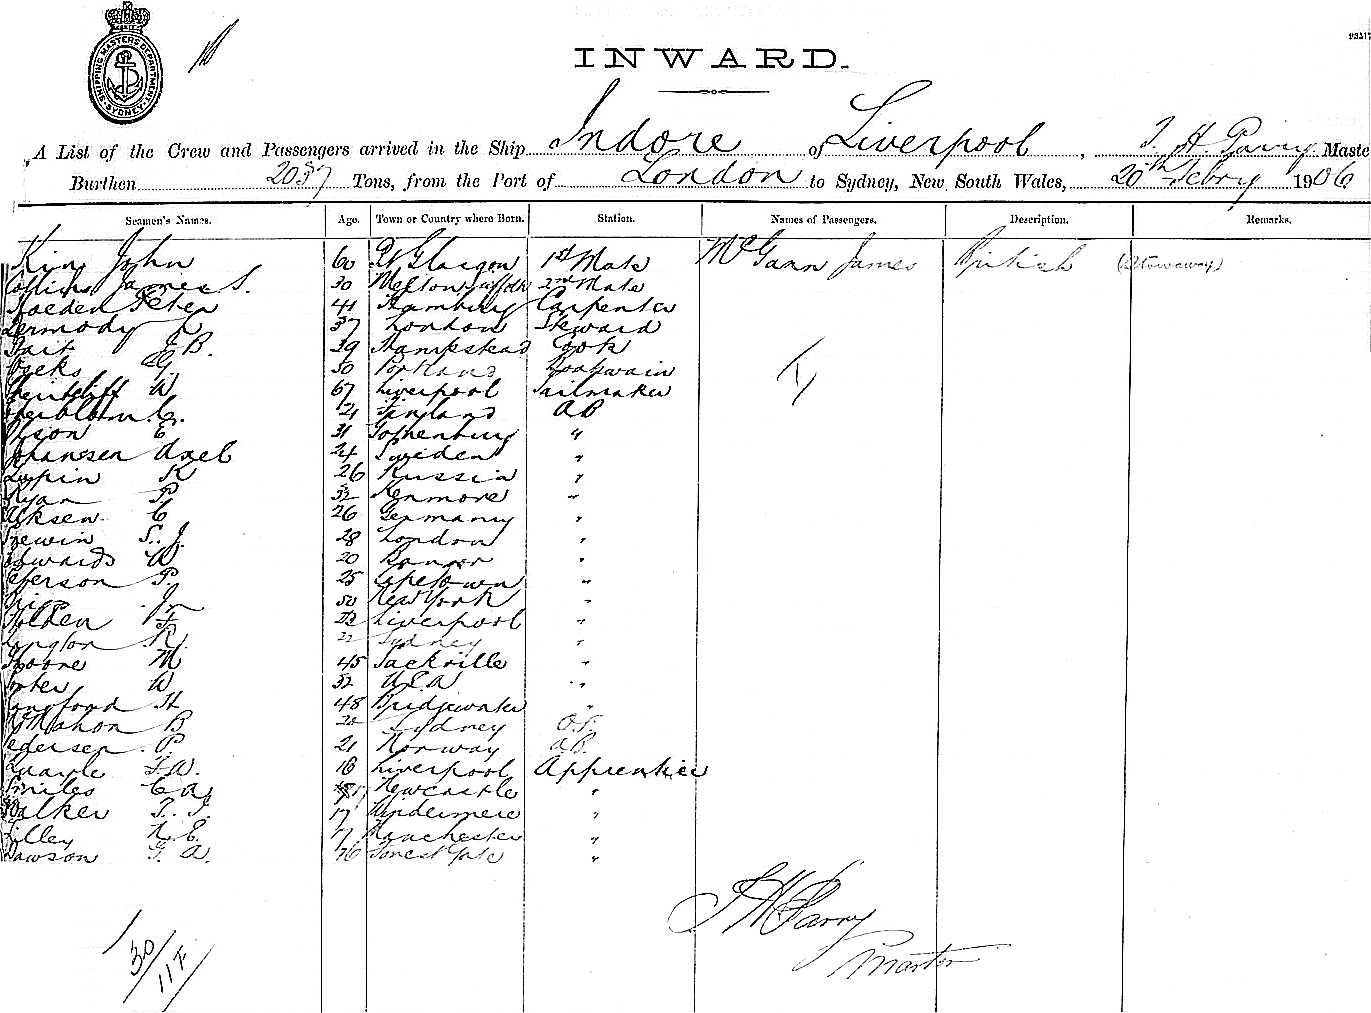 SHIPPING MASTERS DEPARTMENT SYDNEY
INWARD.
A List of the Crew and Passengers arrived in the Ship Indore of Liverpool, T. H. Parry Maste
Burthen 2037 Tons, from the Port of London to Sydney, New South Wales, 20th Febry 1906
Seamen's Names. Age. Town or Country where Born. Station. Names of Passengers. Description. Remarks.
John 60 Pt Glasgow 1st Mate McGann James British (Stowaway)
Collins James S. 30 2nd Mate
Peter 41 Hamburg Carpenter
Dermody 37 London Steward
Tait J B. 39 Hampstead Cook
Weeks G. 50 Portland Boatswain
W 67 Liverpool Sailmaker
C. 21 Finland AB
E. 31 Gothenburg "
Johansen Axel 24 Sweden "
Lupin K 26 Russia "
Ryan P 32 Kenmore "
C 26 Germany "
Trewin S. J. 28 London "
Edwards W 20 Bangor "
Peterson P. 25 Capetown "
Jn 50 New York "
Holden F 22 Liverpool "
Langton R. 22 Sydney "
Moore M 45 Sackville "
Porter W 32 U.S.A "
Langford H 48 Bridgewater "
McMahon B 20 Sydney O.S.
Pedersen P. 21 Norway A.B.
Quayle F. W. 18 Liverpool Apprentice
Smiles C A. 17 Newcastle "
Walker T. J. 17 Windermere "
Tilley N. E. 17 Manchester "
Dawson G. A. 16 Forest Gate "
T H Parry
Master
30/11 F